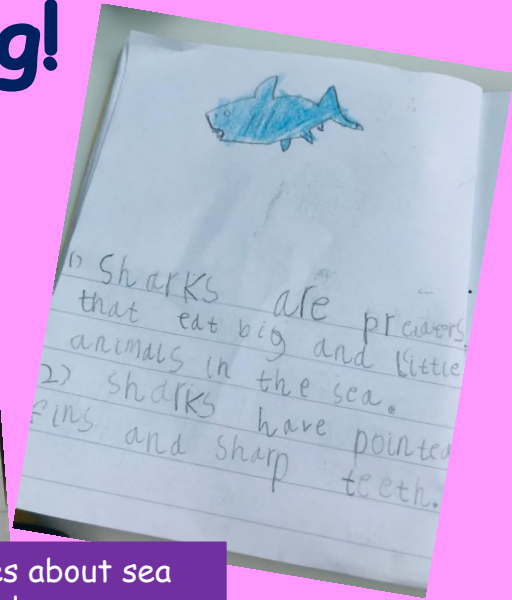 g!
1) Sharks are predators
that eat big and little
animals in the sea.
2) sharks have pointed
fins and sharp teeth.
es about sea